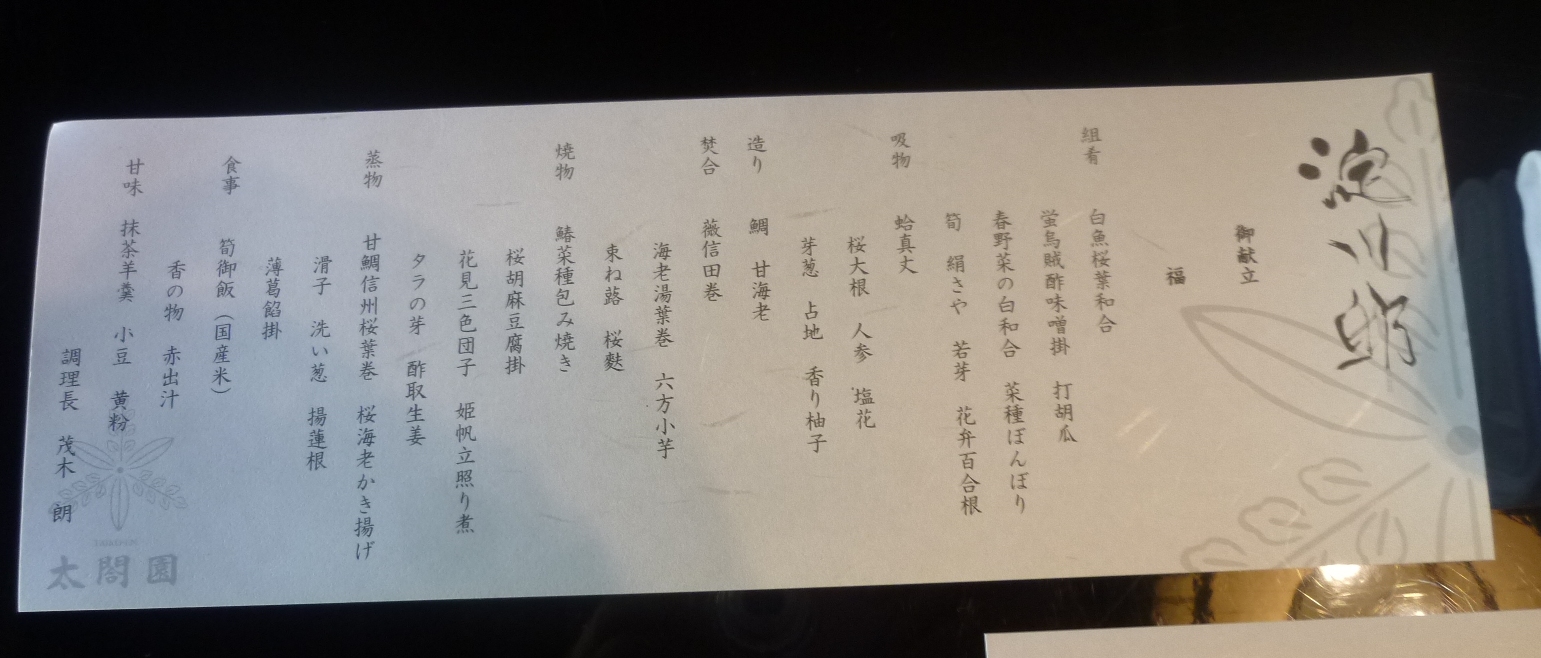 淀川邸
御献立
福
組肴
白魚桜葉和合
蛍烏賊酢味噌掛　打胡瓜
春野菜の白和合　菜種ぼんぼり
筍　絹さや　若芽　花弁百合根
吸物
蛤真丈
桜大根　人参　塩花
芽葱　占地　香り柚子
造り
鯛　甘海老
焚合
薇信田巻
海老湯葉巻　六方小芋
束ね蕗　桜麩
焼物
鰆菜種包み焼き
桜胡麻豆腐掛
花見三色団子　姫帆立照り煮
タラの芽　酢取生姜
蒸物
甘鯛信州桜葉巻　桜海老かき揚げ
滑子　洗い葱　揚蓮根
薄葛餡掛
食事
筍御飯（国産米）
香の物　赤出汁
甘味
抹茶羊羹　小豆　黄粉
調理長　茂木　朗
太閤園